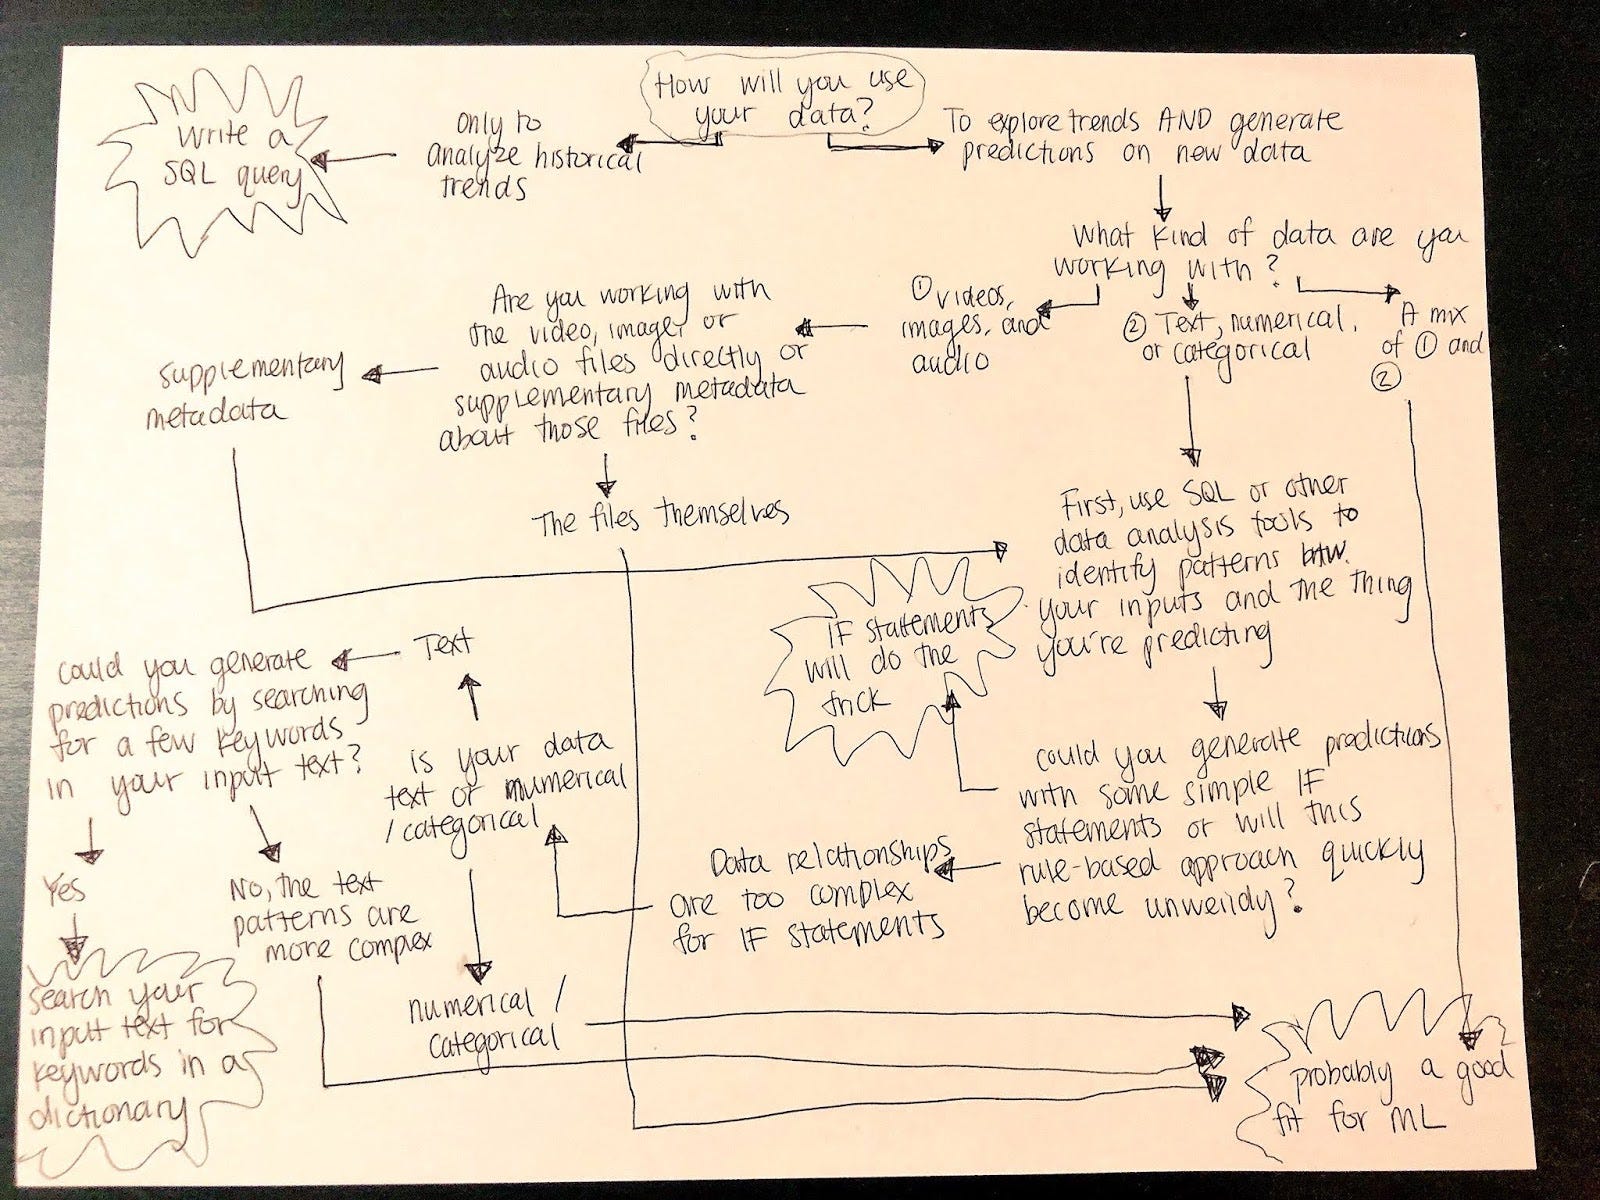 How will you use
your data?
Write a
SQL query
Only to
analyze historical
trends
To explore trends AND generate
predictions on new data
What kind of data are you
working with?
① videos,
images, and
audio
② Text, numerical,
or categorical
A mix
of ① and
②
Are you working with
the video, image, or
audio files directly or
supplementary metadata
about those files?
supplementary
metadata
The files themselves
First, use SQL or other
data analysis tools to
identify patterns btw.
your inputs and the thing
you're predicting
IF statements
will do the
trick
could you generate predictions
with some simple IF
statements or will this
rule-based approach quickly
become unwieldy?
Data relationships
are too complex
for IF statements
is your data
text or numerical
/categorical
Text
could you generate
predictions by searching
for a few keywords
in your input text?
Yes
No, the text
patterns are
more complex
search your
input text for
keywords in a
dictionary
numerical /
categorical
probably a good
fit for ML